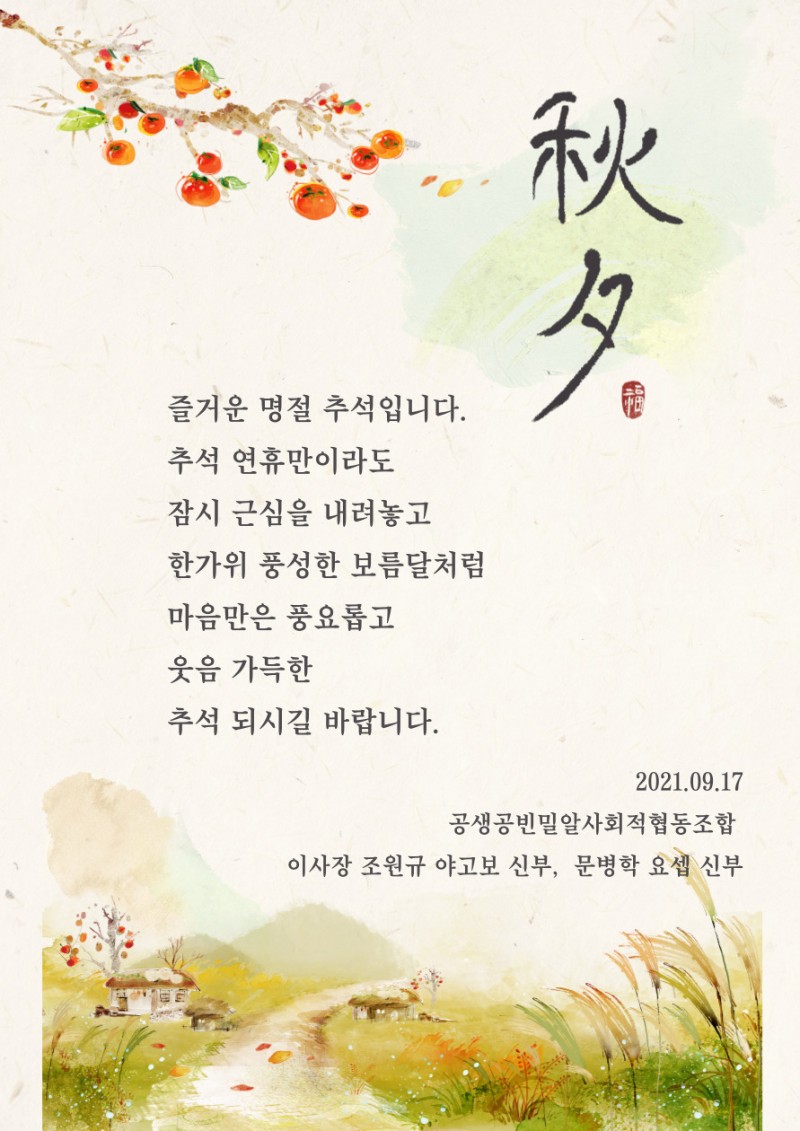 秋夕
福
즐거운 명절 추석입니다.
추석 연휴만이라도
잠시 근심을 내려놓고
한가위 풍성한 보름달처럼
마음만은 풍요롭고
웃음 가득한
추석 되시길 바랍니다.
2021.09.17
공생공빈밀알사회적협동조합
이사장 조원규 야고보 신부, 문병학 요셉 신부